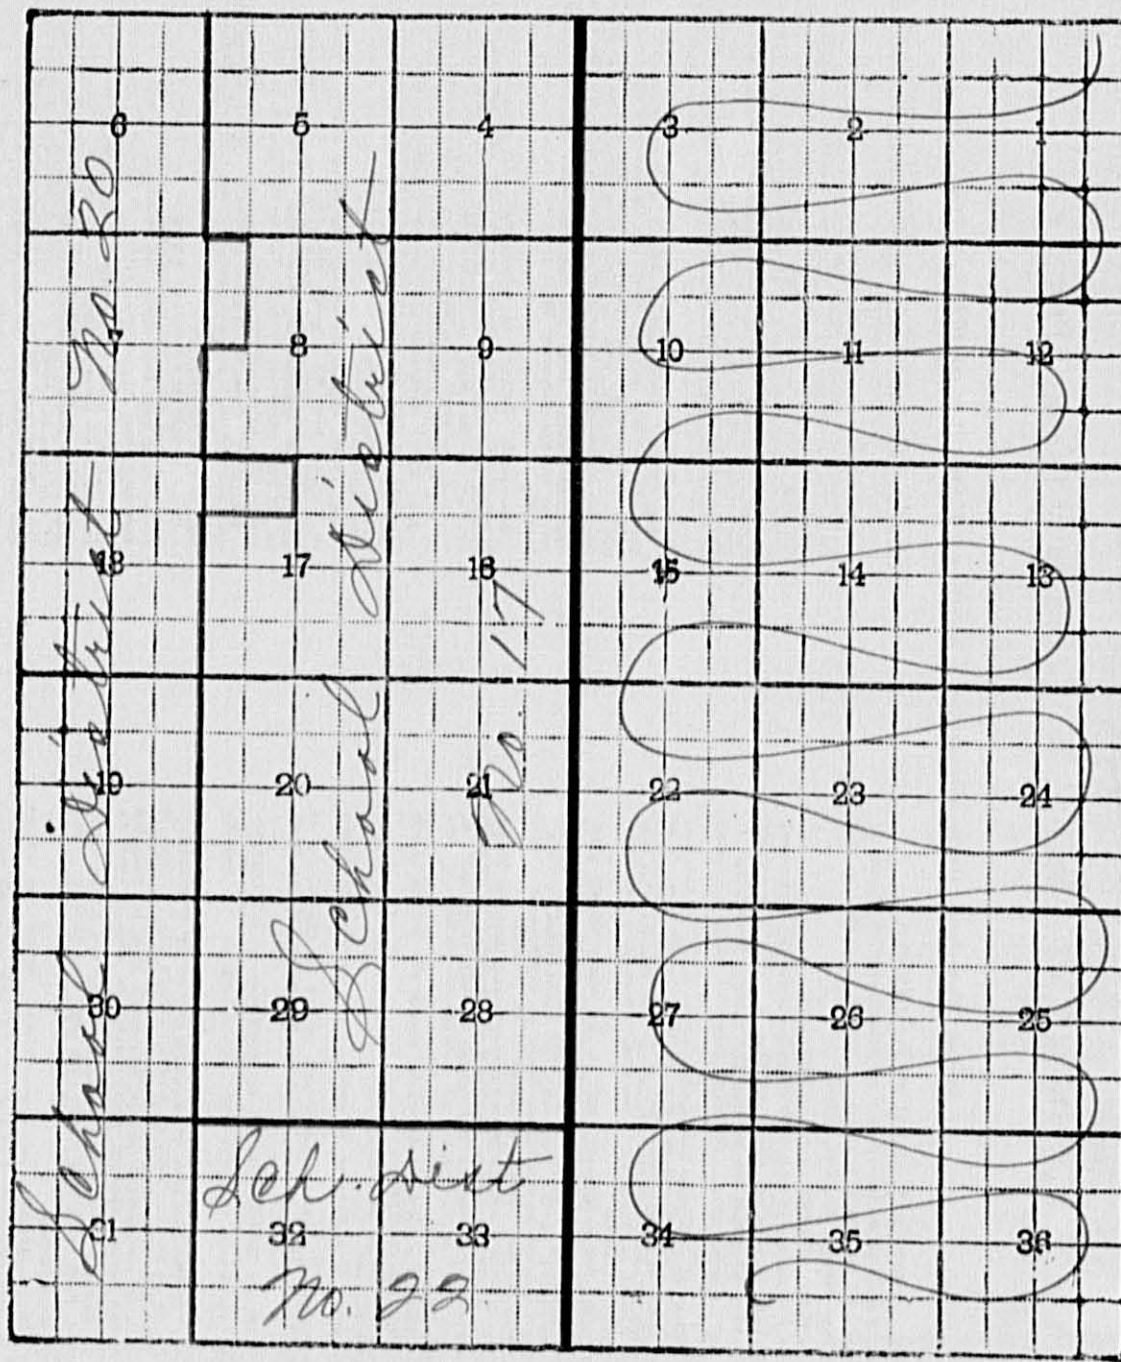 6 5 4 3 2 1
7 8 9 10 11 12
18 17 16 15 14 13
19 20 21 22 23 24
30 29 28 27 26 25
31 32 33 34 35 36
School District No. 30
School District
No. 17
Sch. Dist
No. 22